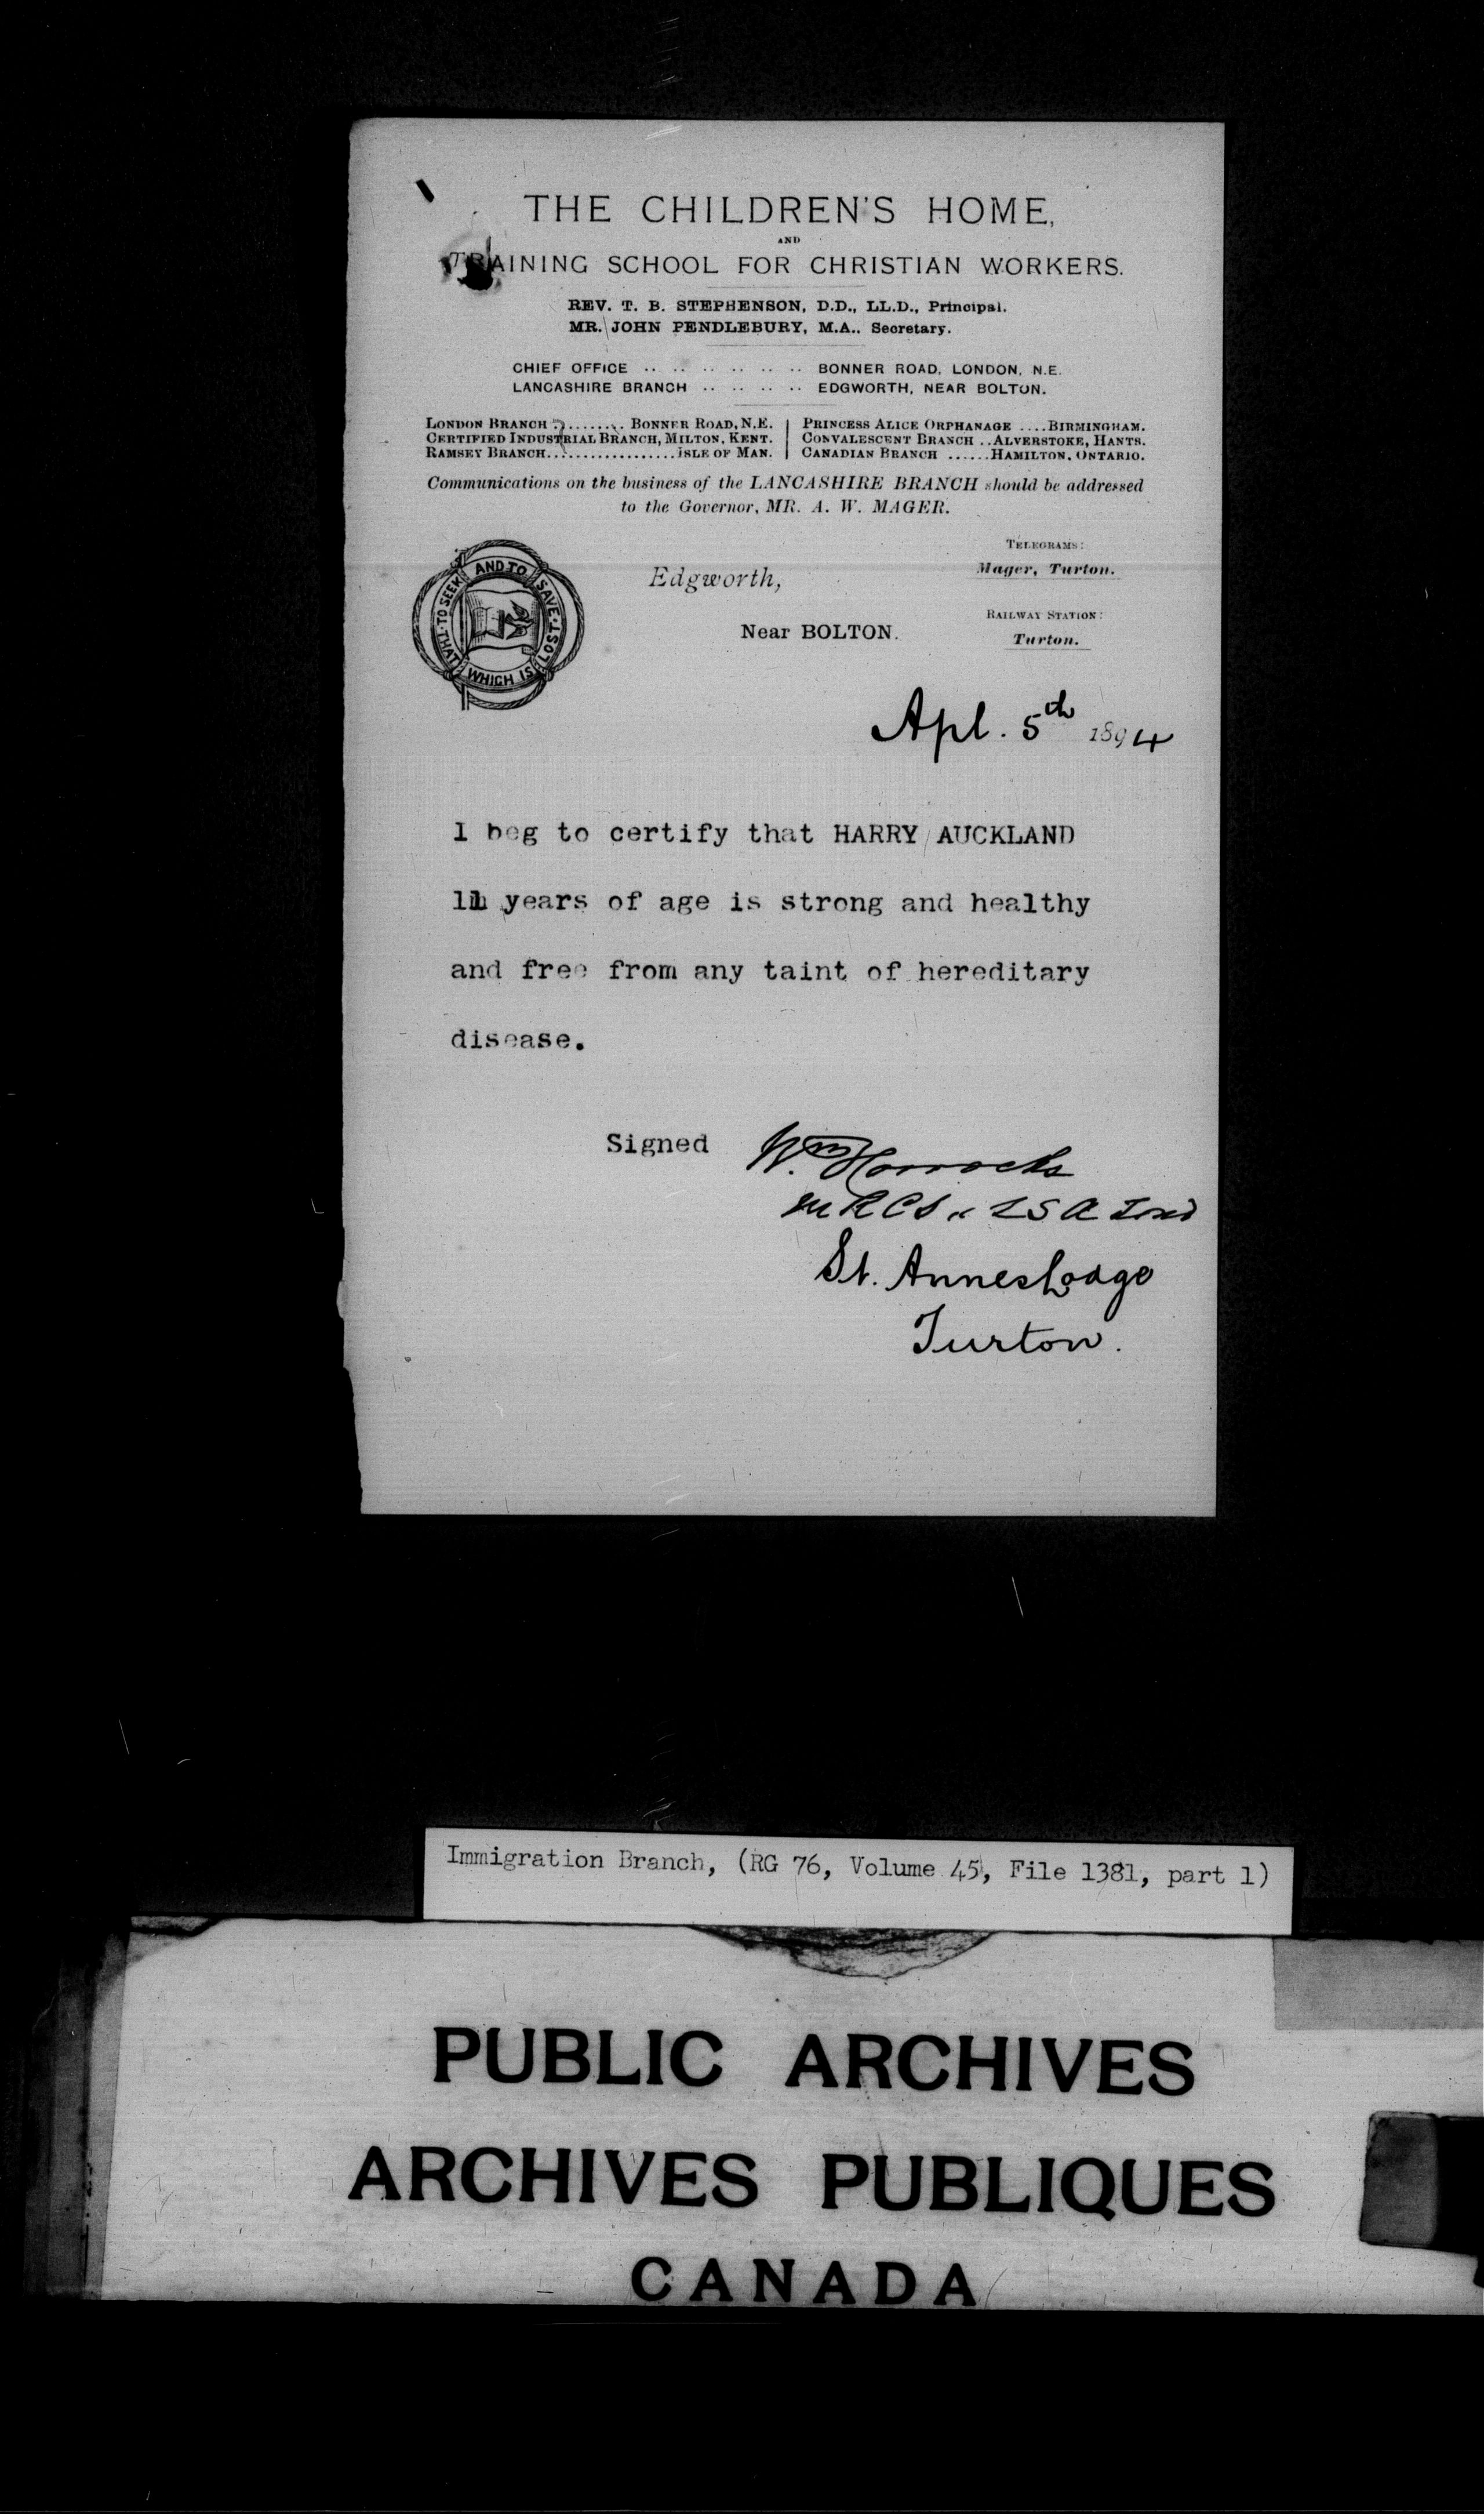 THE CHILDREN'S HOME,
AND
TRAINING SCHOOL FOR CHRISTIAN WORKERS.
REV. T. B. STEPHENSON, D.D., LL.D., Principal.
MR. JOHN PENDLEBURY, M.A., Secretary.
CHIEF OFFICE .. .. .. .. .. .. BONNER ROAD, LONDON, N.E.
LANCASHIRE BRANCH .. .. .. .. EDGWORTH, NEAR BOLTON.
LONDON BRANCH ......... BONNER ROAD, N.E. | PRINCESS ALICE ORPHANAGE ....BIRMINGHAM.
CERTIFIED INDUSTRIAL BRANCH, MILTON, KENT. | CONVALESCENT BRANCH ..ALVERSTOKE, HANTS.
RAMSEY BRANCH..................ISLE OF MAN. | CANADIAN BRANCH ......HAMILTON, ONTARIO.
Communications on the business of the LANCASHIRE BRANCH should be addressed
to the Governor, MR. A. W. MAGER.
TO SEEK AND TO SAVE THAT WHICH IS LOST
Edgworth,
Near BOLTON.
TELEGRAMS:
Mager, Turton.
RAILWAY STATION:
Turton.
Apl. 5th 1894
I beg to certify that HARRY AUCKLAND
11 years of age is strong and healthy
and free from any taint of hereditary
disease.
Signed Wm Horrocks
MRCS & LSA Lond
St. Annes Lodge
Turton.
Immigration Branch, (RG 76, Volume 45, File 1381, part 1)
PUBLIC ARCHIVES
ARCHIVES PUBLIQUES
CANADA